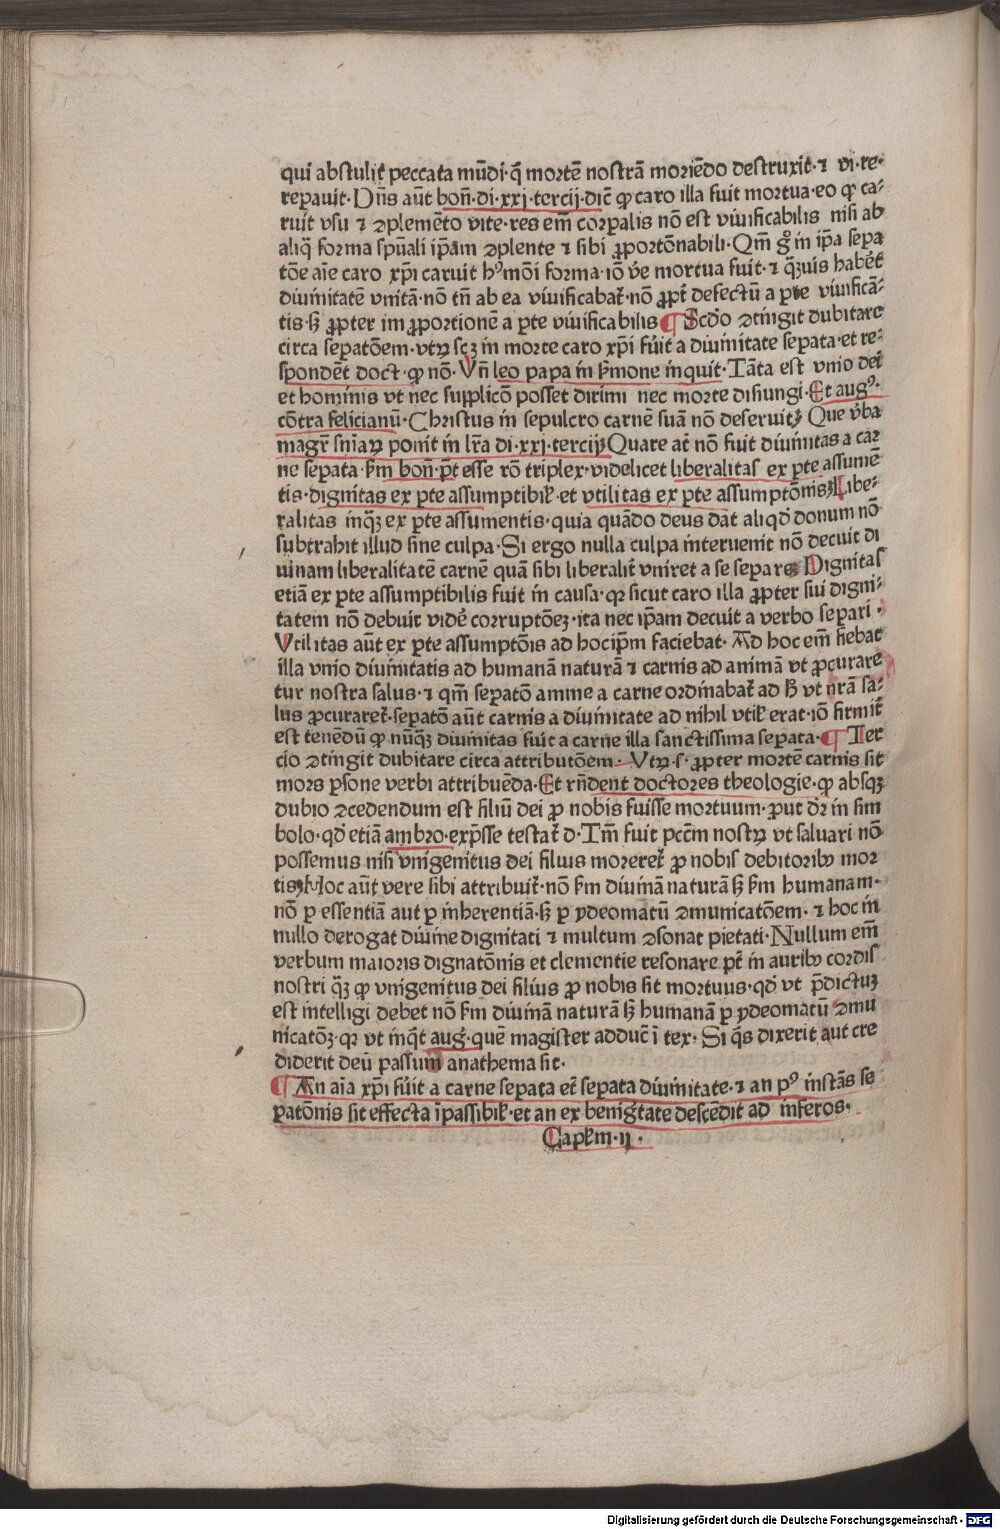 qui abstulit̄ peccata mūdi·q̄ mortē nostrā moriēdo destruxit·⁊ vi·re-
reparauit·Dn̄s aūt bon̄·di·xxj·tercij·dic̄ ꝙ caro illa fuit mortua·eo ꝙ ca-
ruit vsu ⁊ ꝯplemēto vite·res em̄ corꝑalis nō est viuificabilis nisi ab
aliq̄ forma spūali ip̄am ꝯplente ⁊ sibi ꝓportōnabili·Qm̄ gͦ in ip̄a sepa
tōe aīe caro xp̄i caruit hꝰmōi forma·iō ve͞ mortua fuit·⁊ q̄ꝫuis habēt
diuinitatē vnitā·nō tn̄ ab ea viuificabat̄·nō ꝓpt̄ defectū a ꝑte viuificā-
tis·ſꝫ ꝓpter imꝓportionē a ꝑte viuificabilis ¶ Scd̄o ꝯtingit dubitare
circa seꝑatōem·vtꝝ scꝫ in morte caro xp̄i fuit a diuinitate seꝑata·et re-
spondēt doct·ꝙ nō·Vn̄ leo papa in ẜmone inquit·Tāta est vnio dei
et hominis vt nec supplicō posset dirimi nec morte disiungi·Et augꝰ·
cōtra felicianū·Christus in sepulcro carnē suā nō deseruit· Que v̄ba
magr̄ sn̄iaꝝ ponit in lr̄a di·xxj·tercij· Quare at̄ nō fuit diuinitas a car
ne seꝑata ẜm bon̄·pt̄ esse rō triplex·videlicet liberalitas ex ꝑte assumē
tis·dignitas ex ꝑte assumptibiƚ·et vtilitas ex ꝑte assumptōnis· Libe-
ralitas inq̄ꝫ ex ꝑte assumentis·quia quādo deus dat aliqd̄ donum nō
subtrahit illud sine culpa·Si ergo nulla culpa interuenit nō decuit di
uinam liberalitatē carnē quā sibi liberalit̄ vniret a se seꝑare Dignitas
etiā ex ꝑte assumptibilis fuit in causa·qꝛ sicut caro illa ꝓpter sui digni-
tatem nō debuit vide͞ corruptōeꝫ·ita nec ip̄am decuit a verbo seꝑari·
Vtilitas aūt ex ꝑte assumptōis ad hocip̄m faciebat· Ad hoc em̄ fiebat
illa vnio diuinitatis ad humanā naturā ⁊ carnis ad animā vt ꝓcurare
tur nostra salus·⁊ qm̄ seꝑatō anime a carne ordinabat̄ ad hͦ vt nr̄a sa-
lus ꝓcuraret̄·seꝑatō aūt carnis a diuinitate ad nihil vtiƚ erat·iō firmit̄
est tenēdū ꝙ nūq̄ꝫ diuinitas fuit a carne illa sanctissima seꝑata·¶ Ter
cio ꝯtingit dubitare circa attributōem· Vtꝝ·s·ꝓpter mortē carnis sit
mors ꝑsone verbi attribuēda·Et rn̄dent doctores theologie·ꝙ absqꝫ
dubio ꝯcedendum est filiū dei ꝓ nobis fuisse mortuum·ꝓut dr̄ in sim
bolo·qd̄ etiā ambro·exp̄sse testat̄ d·Tm̄ fuit pctm̄ nostꝝ vt saluari nō
possemus nisi vnigenitus dei filius moreret̄ ꝓ nobis debitoribꝰ mor
tis· Hoc aūt vere sibi attribuit̄·nō ẜm diuinā naturā ſꝫ ẜm humanam·
nō ꝑ essentiā aut ꝑ inherentiā·ſꝫ ꝑ ydeomatū ꝯmunicatōem·⁊ hoc in
nullo derogat diuine dignitati ⁊ multum ꝯsonat pietati·Nullum em̄
verbum maioris dignatōnis et clementie resonare pt̄ in auribꝰ cordis
nostri q̄ꝫ ꝙ vnigenitus dei filius ꝓ nobis sit mortuus·qd̄ vt p̄dictuꝫ
est intelligi debet nō ẜm diuinā naturā ſꝫ humanā ꝑ ydeomatū ꝯmu
nicatōꝫ·qꝛ vt inq̄t auḡ·quē magister adduc̄ ī tex· Si q̄s dixerit aut cre
diderit deū passum anathema sit·
¶ An aīa xp̄i fuit a carne seꝑata et̄ seꝑata diuinitate·⁊ an pꝰ instās se
ꝑatōnis sit effecta īpassibiƚ·et an ex beniḡtate descēdit ad inferos·
Capƚm·ij·
Digitalisierung gefördert durch die Deutsche Forschungsgemeinschaft - DFG